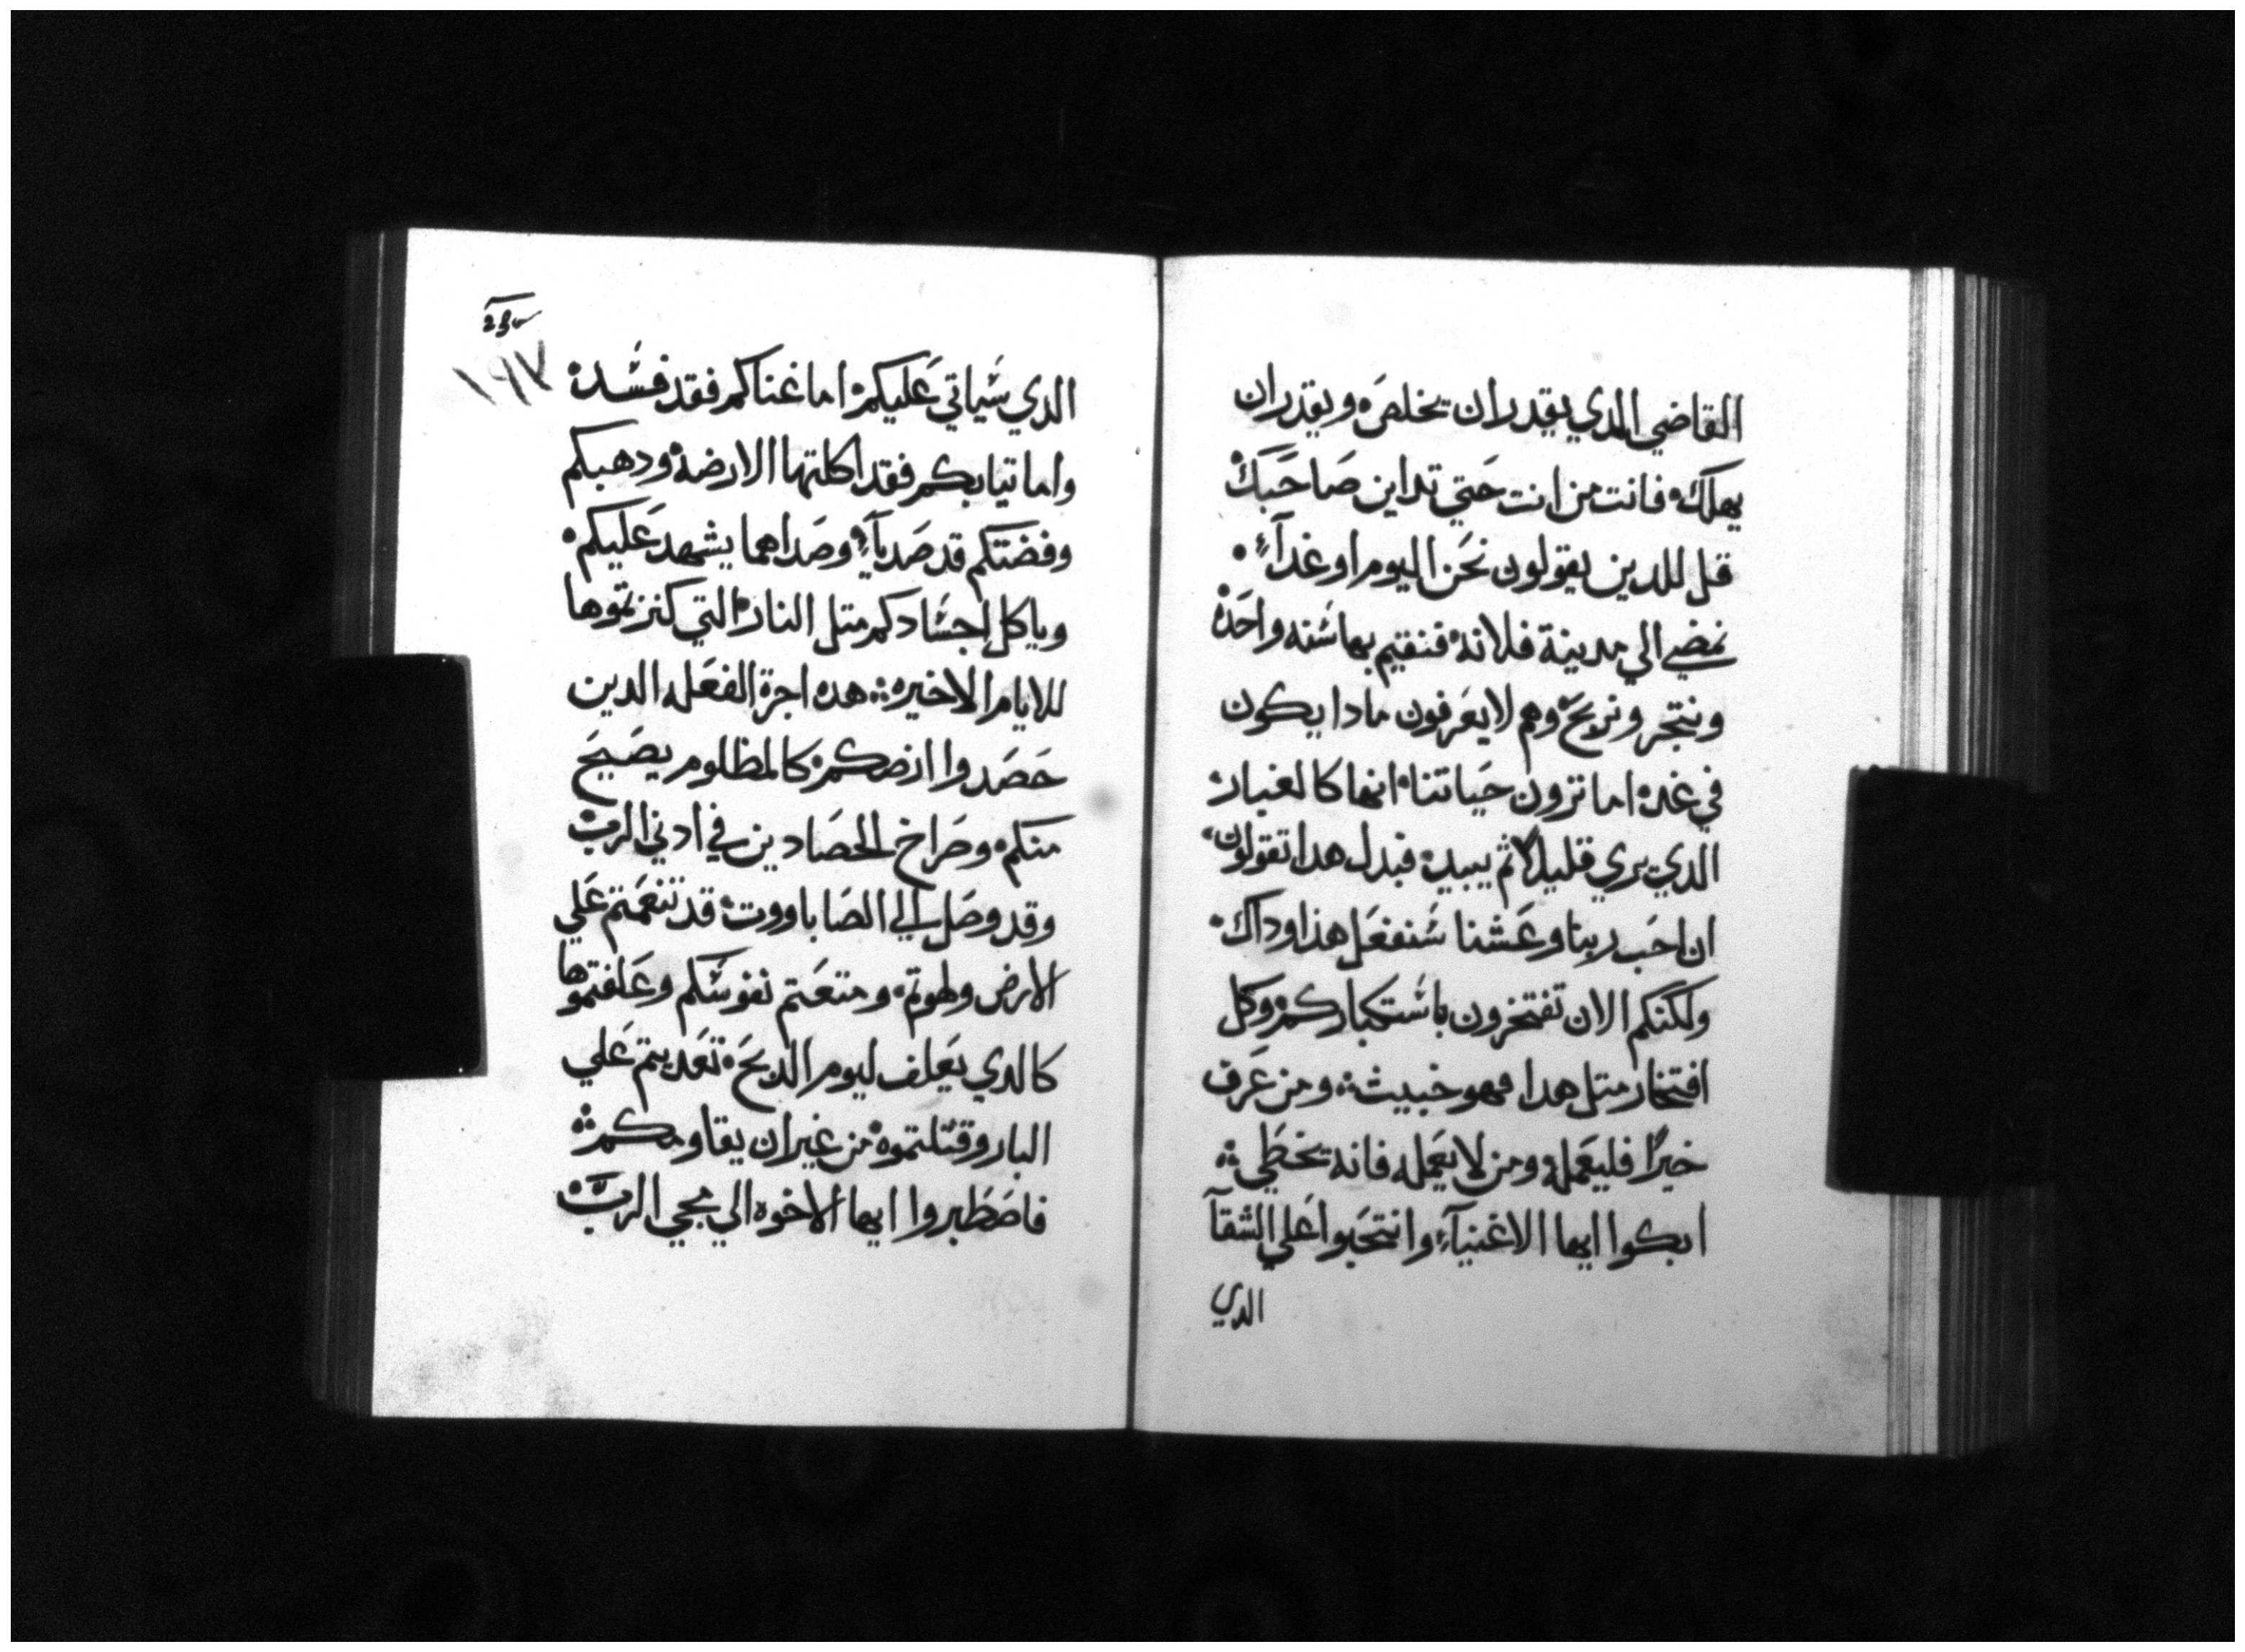 القاضي الدي يقدر ان يخلص ويقدر ان
يهلك فانت من انت حتي تداين صاحبك
قل للدين يقولون نحن اليوم او غداً
نمضي الي مدينة فلانه فنقيم بها شنه واحده
ونتجر ونربح وهم لا يعرفون مادا يكون
في غد اما ترون حياتنا انها كالغبار
الدي يري قليلا ثم يبيد فبدل هدا تقولون
ان احب ربنا وعشنا شنفعل هذا وداك
ولكنكم الان تفتخرون باشتكباركم وكل
افتخار متل هدا فهو خبيث ومن عرف
خيرًا فليعمله ومن لا يعمله فانه يخطي
ابكوا ايها الاغنيآء وانتحبوا علي الشقآ
الدي
١٩٧
الدي شياتي عليكم اما غناكم فقد فشد
واما تيابكم فقد اكلتها الارضه ودهبكم
وفضتكم قد صديآ وصداهما يشهد عليكم
وياكل اجشادكم متل النار التي كنزتموها
للايام الاخيره هده اجرة الفعله الدين
حصدوا ارضكم كالمظلوم يصيح
منكم وصراخ الحصادين في ادني الرب
وقد وصل الي الصاباووت قد تنعمتم علي
الارض ولهوتم ومتعتم نفوشكم وعلفتموها
كالدي يعلف ليوم الدبح تعديتم علي
البار وقتلتموه من غير ان يقاومكم
فاصطبروا ايها الاخوه الي مجي الرب